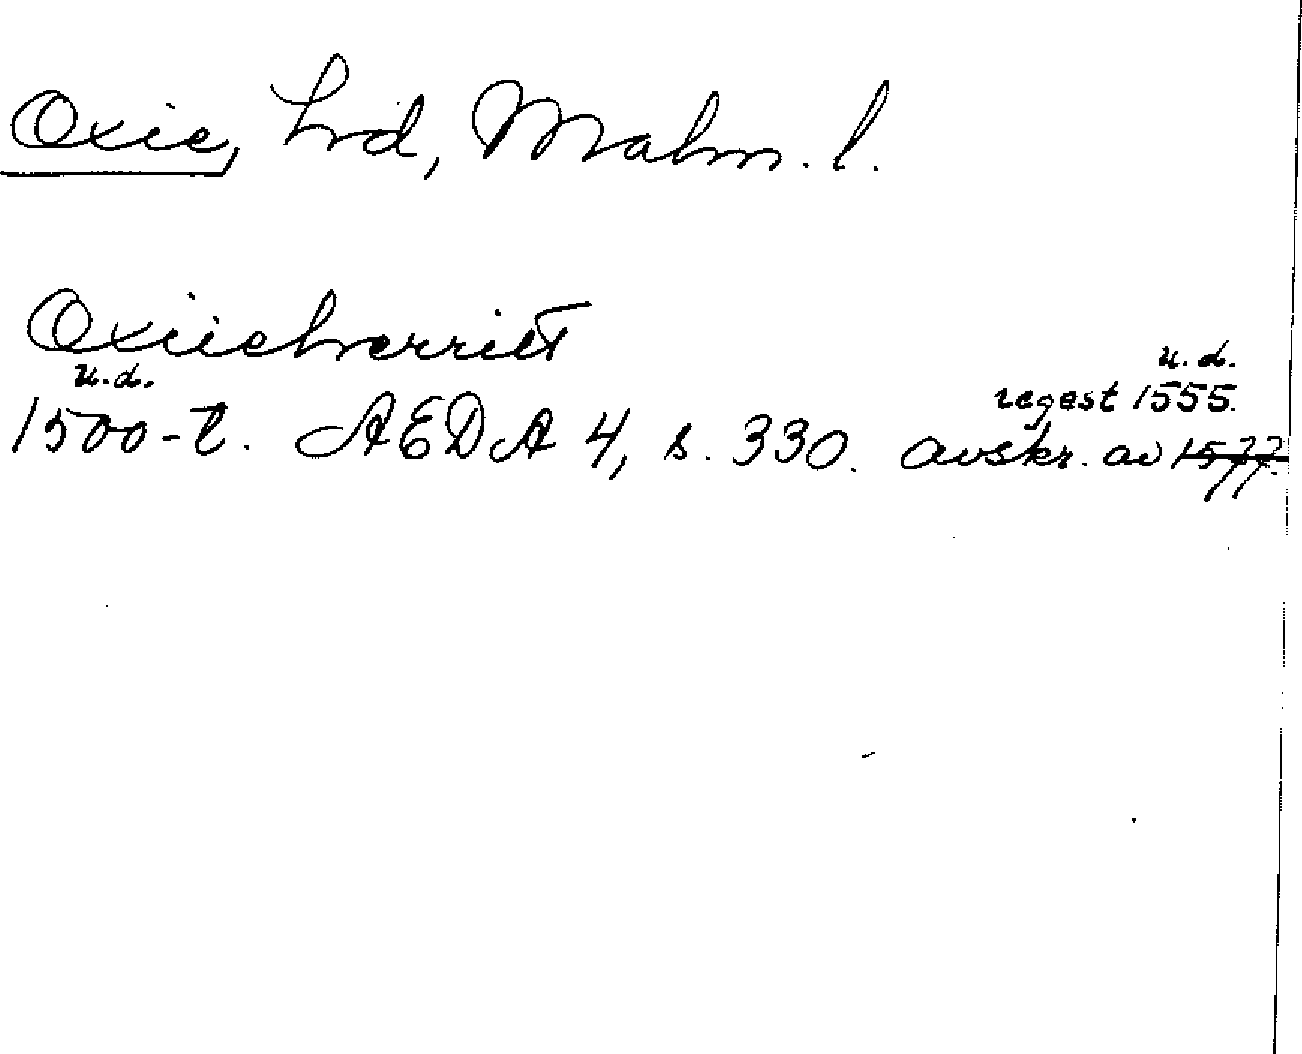 Oxie, hd, Malm. l.
Oxiicherritt
u.d.
u.d.
regest 1555.
1500-t. AEDA 4, s. 330. avskr. av 1577